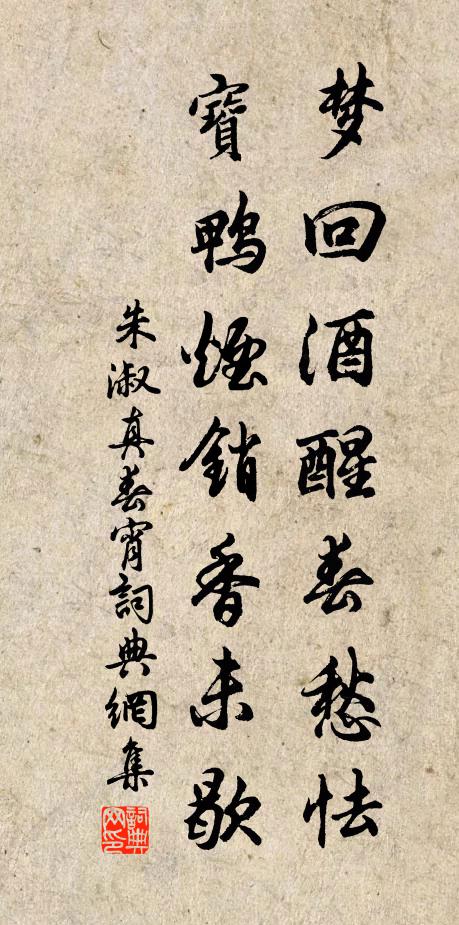 梦回酒醒春愁怯
寶鴨煙銷香未歇
朱淑真春宵詞典網集
詞典网印